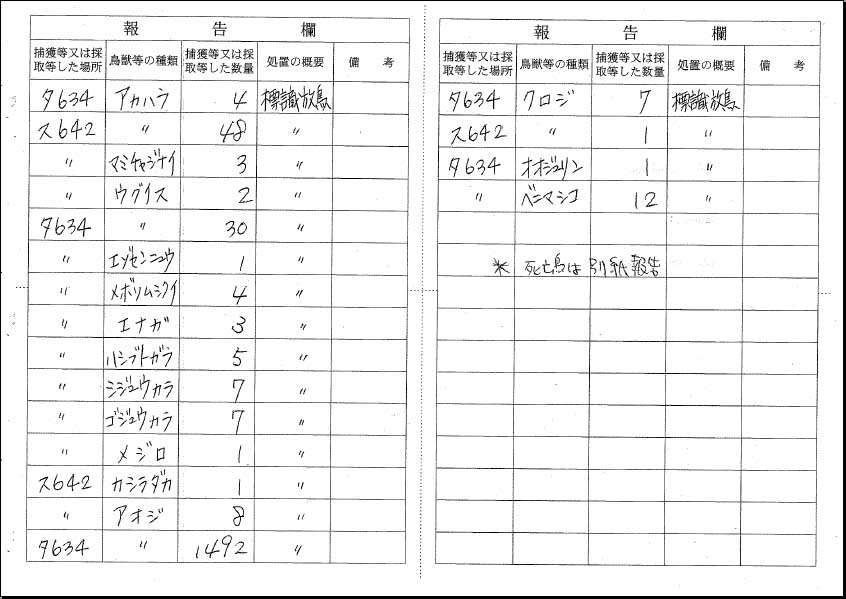 報告欄
捕獲等又は採取等した場所 鳥獣等の種類 捕獲等又は採取等した数量 処置の概要 備考
タ634 アカハラ 4 標識放鳥
ス642 〃 48 〃
〃 マミチャジナイ 3 〃
〃 ウグイス 2 〃
タ634 〃 30 〃
〃 エゾセンニュウ 1 〃
〃 メボソムシクイ 4 〃
〃 エナガ 3 〃
〃 ハシブトガラ 5 〃
〃 シジュウカラ 7 〃
〃 ゴジュウカラ 7 〃
〃 メジロ 1 〃
ス642 カシラダカ 1 〃
〃 アオジ 8 〃
タ634 〃 1492 〃
報告欄
捕獲等又は採取等した場所 鳥獣等の種類 捕獲等又は採取等した数量 処置の概要 備考
タ634 クロジ 7 標識放鳥
ス642 〃 1 〃
タ634 オオジュリン 1 〃
〃 ベニマシコ 12 〃
※ 死亡鳥は別紙報告